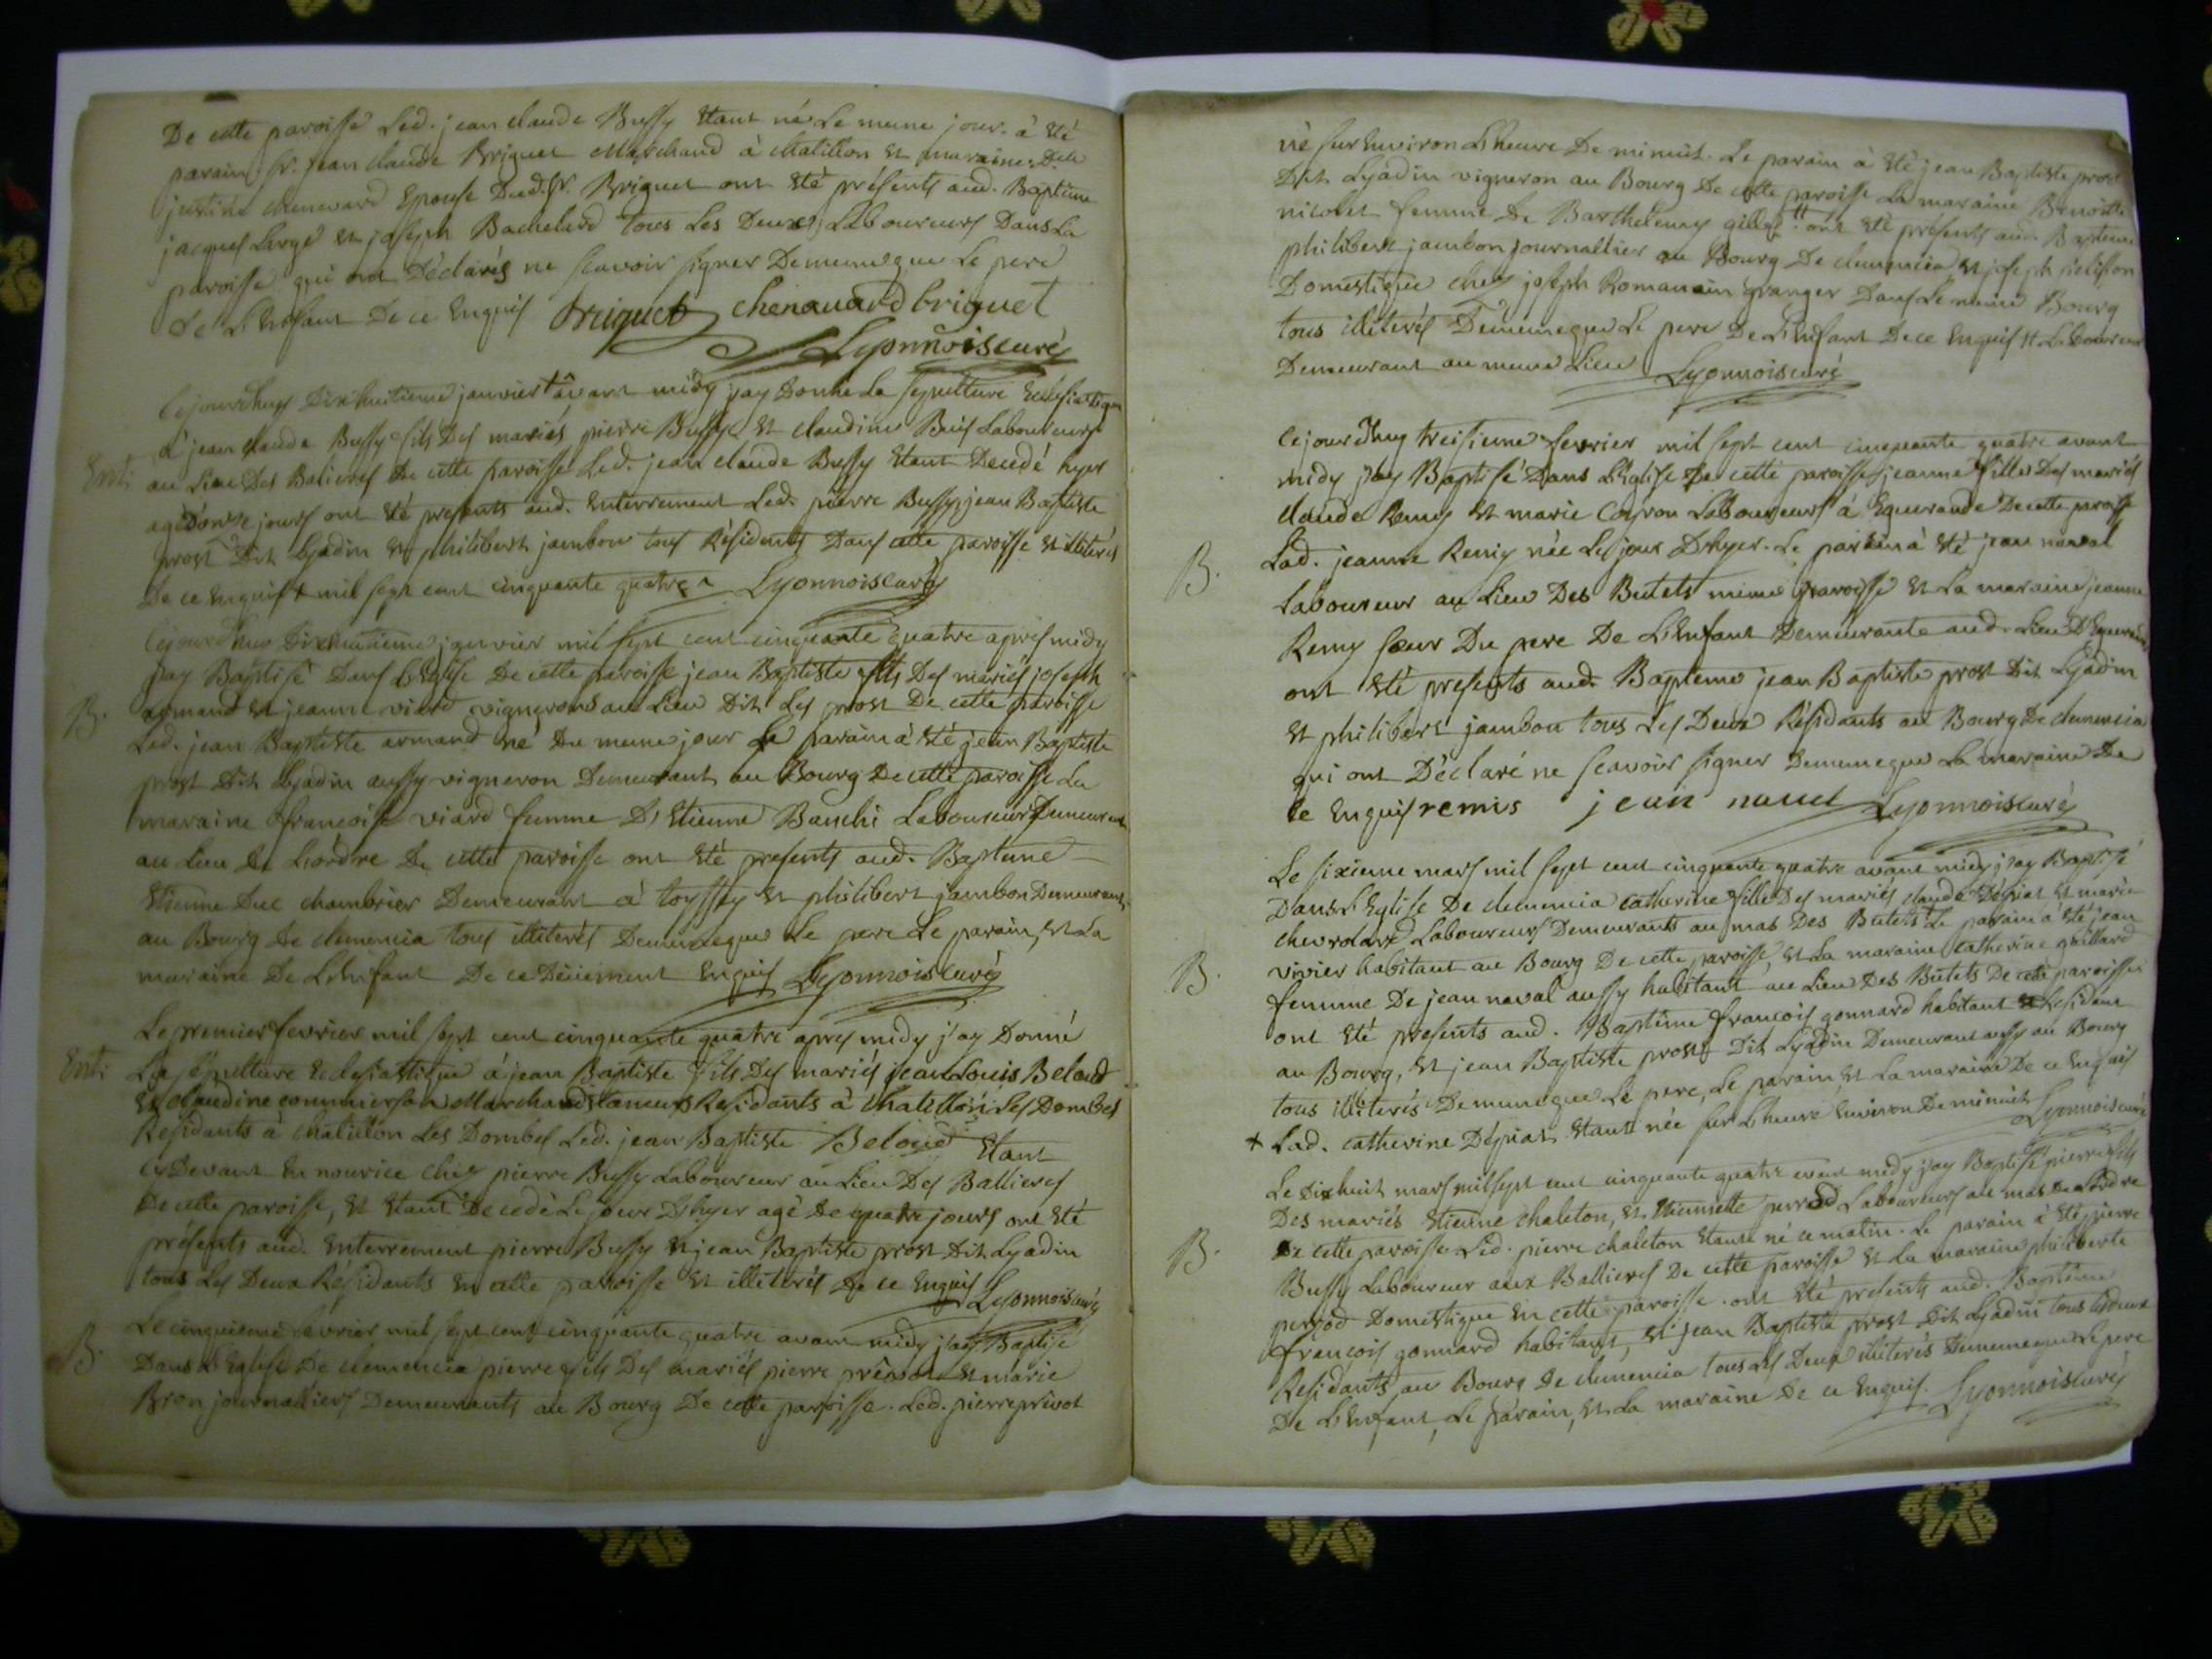 De cette paroisse Led. jean claude Bussy Etant né Le meme jour. à été
parain sr. jean claude Briguet Marchand à chatillon et maraine Dlle
justine chenavard Epouse Dud. sr. Briguet ont été présents aud. Baptême
jacques Large et joseph Bachelard tous Les Deux Laboureurs Dans La
paroisse qui ont Déclarés ne scavoir signer Dememeque Le pere
De L'Enfant De ce Enquis Briguet chenavard briguet
Lyonnois curé
Cejourdhuy Dixhuitieme janvier + avant midy jay Donné La sepulture Eclesiastique
à jean claude Bussy fils Des mariés pierre Bussy et claudine Buis Laboureurs
Ent. au Lieu Des Balieres De cette paroisse Led. jean claude Bussy Etant Decedé hyer
agé jours ont été presents aud. Enterrement Led. pierre Bussy, jean Baptiste
prost Dit Lyadin et philibert jambon tous Résidents Dans cette paroisse et illiterés
De ce Enquis + mil sept cent cinquante quatre Lyonnois curé
Cejourdhuy janvier mil sept cent cinquante quatre apres midy
jay Baptisé Dans L'Eglise De cette paroisse jean Baptiste fils Des mariés joseph
B. armand et jeanne viard vignerons au Lieu Dit Les prost De cette paroisse
Led. jean Baptiste armand né Du meme jour Le parain à été jean Baptiste
prost Dit Lyadin aussy vigneron Demeurant au Bourg De cette paroisse La
maraine francoise viard femme D'Etienne Banchi Laboureur Demeurant
au Lieu De Lordre De cette paroisse ont été presents aud. Bapteme
Etienne Duc chambrier Demeurant à toyssey et philibert jambon Demeurant
au Bourg De clemencia tous illiterés Dememeque Le pere Le parain, et La
maraine De L'Enfant De ce Enquis Lyonnois curé
Le premier fevrier mil sept cent cinquante quatre apres midy j'ay Donné
Ent. La sépulture Eclesiastique à jean Baptiste fils Des mariés jean Louis Beloud
et claudine commerson Marchands Residants à chatillon Les Dombes
Residants à chatillon Les Dombes Led. jean Baptiste Beloud Etant
cy Devant En nourice chez pierre Bussy Laboureur au Lieu Des Ballieres
De cette paroisse, et Etant Decedé Le jour D'hyer agé De quatre jours ont été
présents aud. Enterrement pierre Bussy et jean Baptiste prost Dit Lyadin
tous Les Deux Résidants En cette paroisse et illiterés De ce Enquis Lyonnois curé
Le cinquieme fevrier mil sept cent cinquante quatre avant midy j'ay Baptisé
B. Dans L'Eglise De clemencia pierre fils Des mariés pierre et marie
Bron journalliers Demeurants au Bourg De cette paroisse. Led. pierre privot
né sur Environ L'heure De minuit. Le parain à été jean Baptiste prost
Dit Lyadin vigneron au Bourg De cette paroisse La maraine Benoiste
nicolet femme De Barthelemy gillet ont été présents aud. Bapteme
philibert jambon journallier au Bourg De clemencia, et joseph pelisson
Domestique chez joseph Romanain granger Dans Le meme Bourg
tous illiterés Dememeque Le pere De L'Enfant De ce Enquis Laboureur
Demeurant au meme Lieu Lyonnois curé
Cejourdhuy treisieme fevrier mil sept cent cinquante quatre avant
midy j'ay Baptisé Dans L'Eglise De cette paroisse jeanne fille Des mariés
claude Remy et marie Coyron Laboureurs à Eguerande De cette paroisse
B. Lad. jeanne Remy née Le jour D'hyer. Le parain à été jean naval
Laboureur au Lieu Des Butets meme paroisse et La maraine jeanne
Remy sœur Du pere De L'Enfant Demeurante aud. Lieu D'Eguerande
ont été presents aud. Bapteme jean Baptiste prost Dit Lyadin
et philibert jambon tous Les Deux Résidants au Bourg De clemencia
qui ont Déclaré ne scavoir signer Dememeque La maraine De
ce Enquis remis jean naual Lyonnois curé
Le sixieme mars mil sept cent cinquante quatre avant midy j'ay Baptisé
Dans L'Eglise De clemencia catherine fille Des mariés claude Dépiat et marie
chevrolard Laboureurs Demeurants au mas Des Butets Le parain à été jean
B. vivier habitant au Bourg De cette paroisse, et La maraine catherine guillard
femme De jean naval aussy habitant au Lieu Des Butets De cette paroisse
ont été presents aud. Baptême francois gonnard habitant et Residant
au Bourg, et jean Baptiste prost Dit Lyadin Demeurant aussy au Bourg
tous illiterés Dememeque Le pere, Le parain et La maraine De ce Enquis
+ Lad. catherine Dépiat Etant née sur L'heure Environ De minuit Lyonnois curé
Le Dixhuit mars mil sept cent cinquante quatre avant midy j'ay Baptisé pierre fils
Des mariés Etienne chaleton, et Etiennette perrod Laboureurs au mas De Lordre
De cette paroisse. Led. pierre chaleton Etant né ce matin. Le parain à été pierre
B. Bussy Laboureur aux Ballieres De cette paroisse et La maraine philiberte
perrod Domestique En cette paroisse. ont été présents aud. Baptême
francois gonnard habitant, et jean Baptiste prost Dit Lyadin tous Les Deux
Residants au Bourg De clemencia tous Les Deux illiterés Dememeque Le pere
De L'Enfant, Le parain, et La maraine De ce Enquis. Lyonnois curé